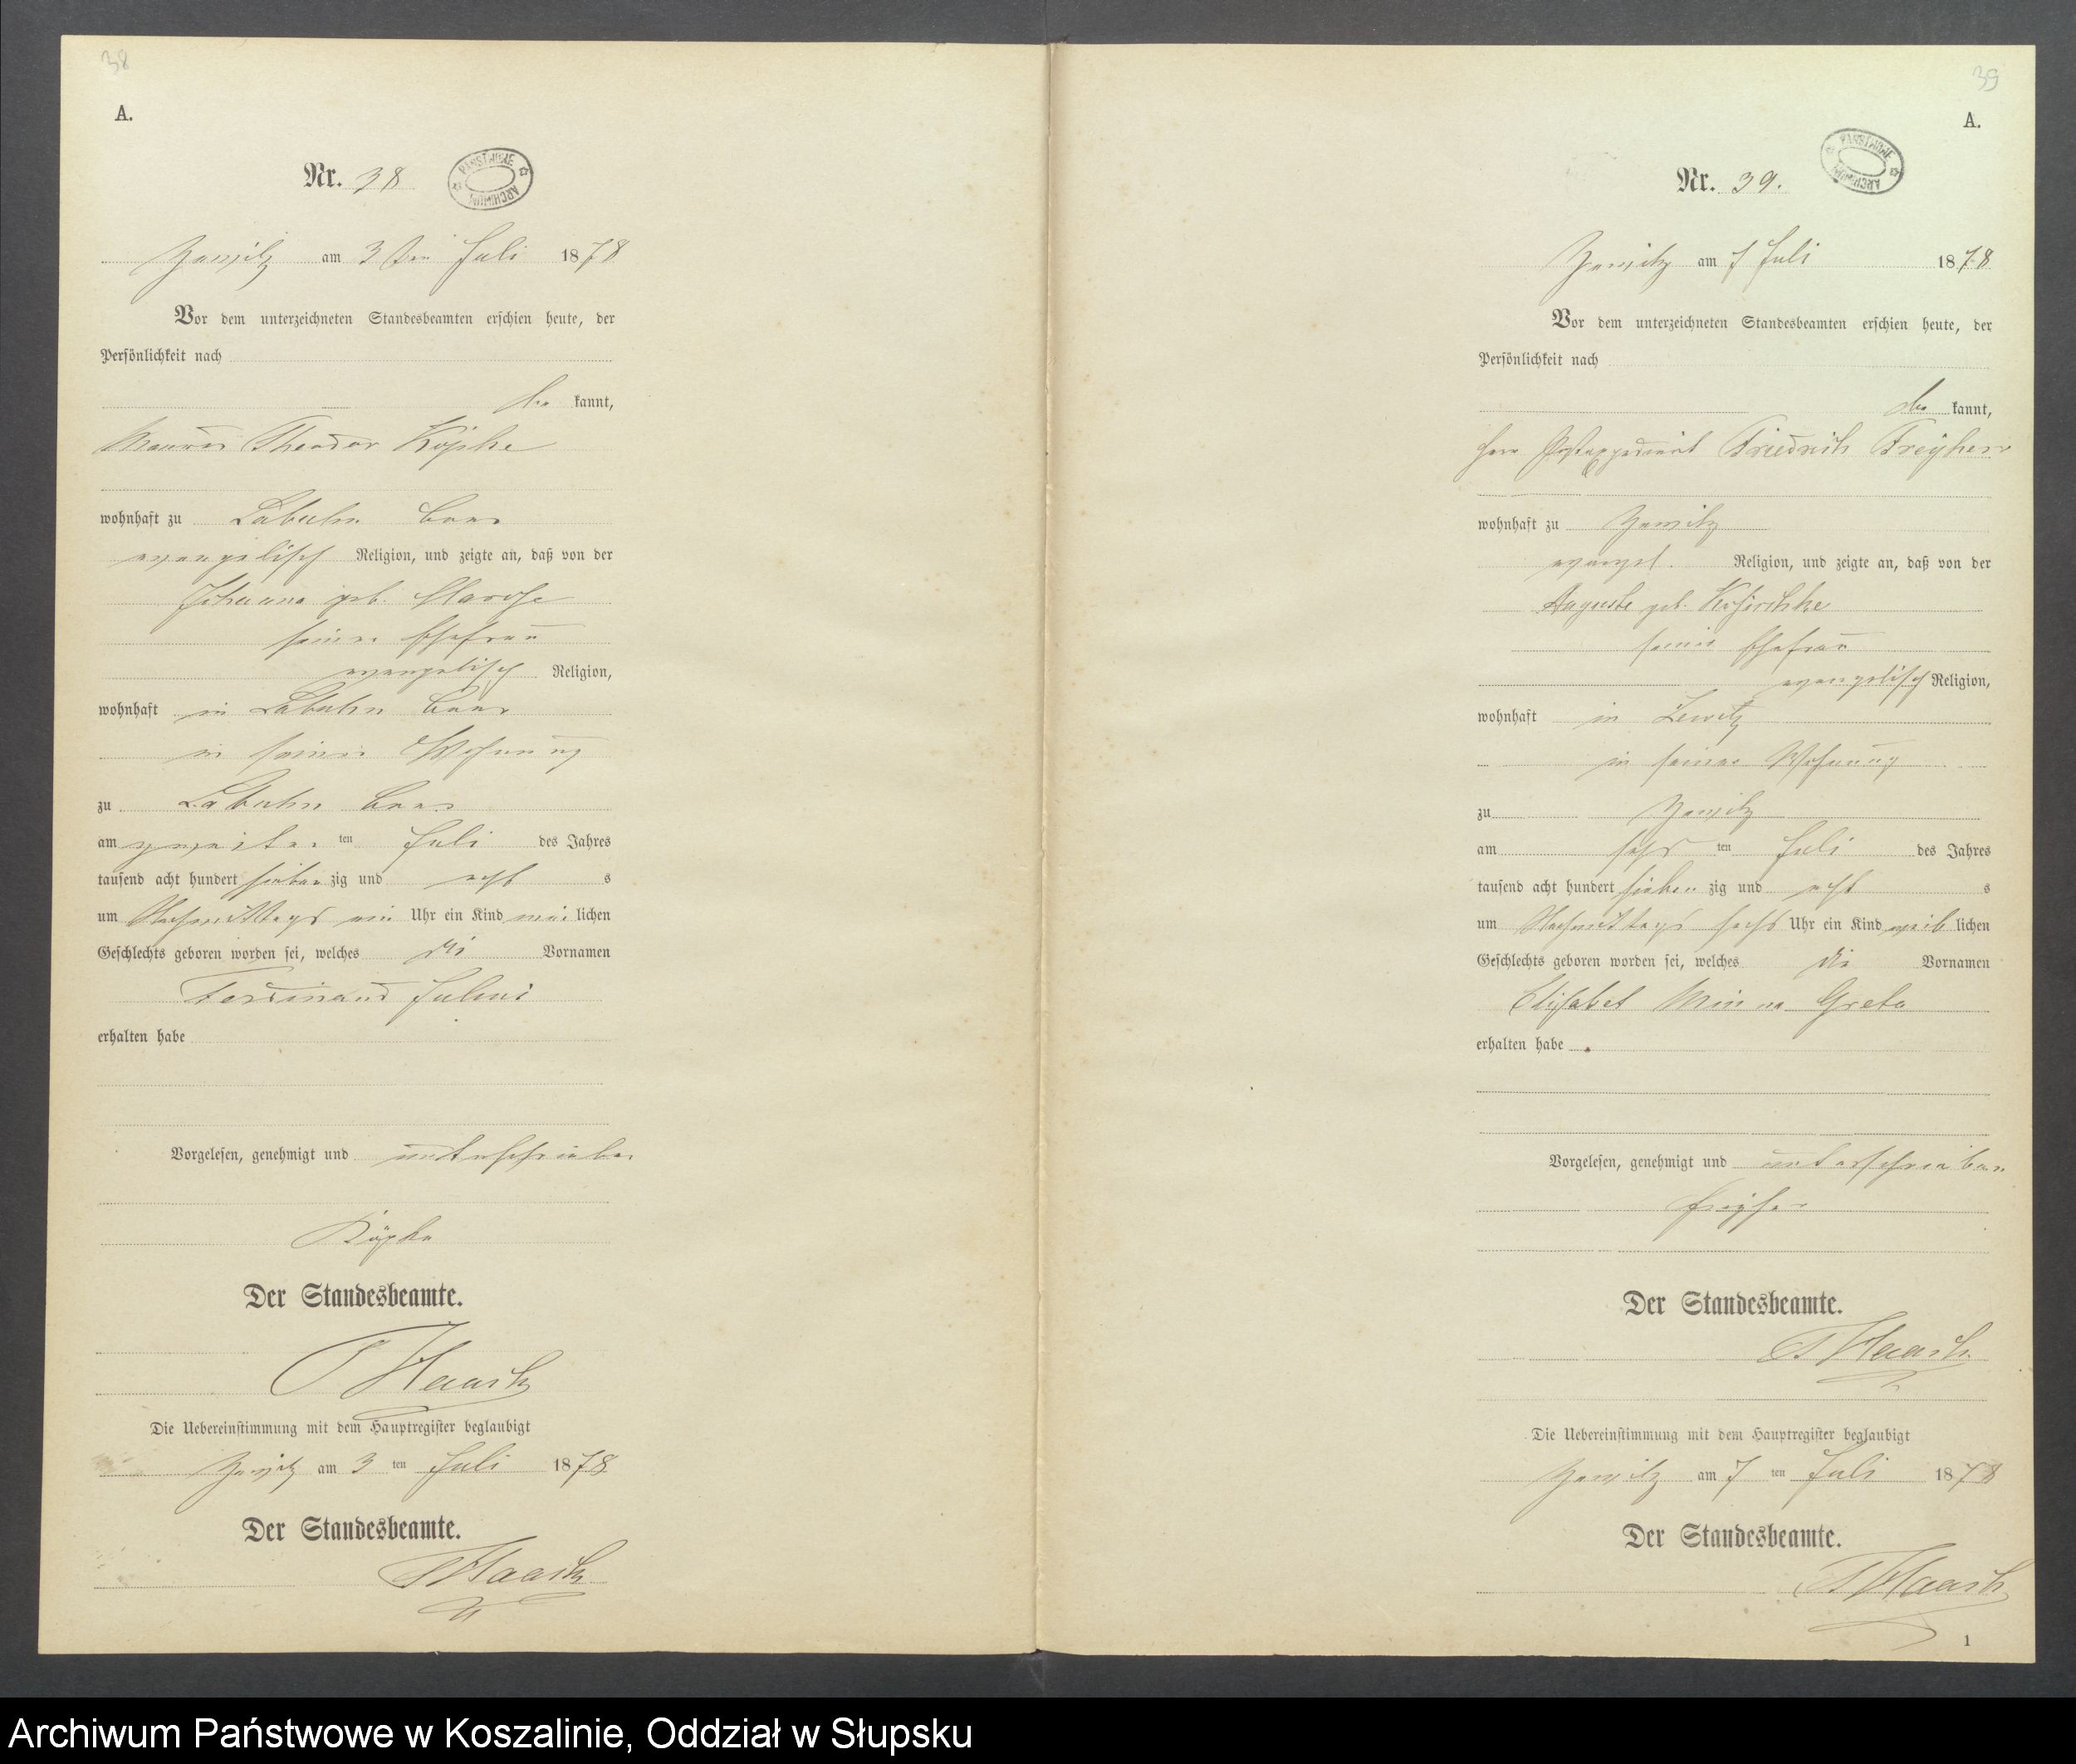 38
A.
Nr. 38
PAŃSTWOWE ARCHIWUM
Zewitz am 3 ten Juli 1878
Vor dem unterzeichneten Standesbeamten erschien heute, der
Persönlichkeit nach
be kannt,
Maurer Theodor Köpke
wohnhaft zu Labuhn
evangelisch Religion, und zeigte an, daß von der
Johanna geb.
seiner Ehefrau
evangelisch Religion,
wohnhaft in Labuhn
in seiner Wohnung
zu Labuhn
am zweiten ten Juli des Jahres
tausend acht hundert sieben zig und acht s
um Nachmittags ein Uhr ein Kind män lichen
Geschlechts geboren worden sei, welches die Vornamen
Ferdinand Julius
erhalten habe
Vorgelesen, genehmigt und unterschrieben
Köpke
Der Standesbeamte.
Haack
Die Uebereinstimmung mit dem Hauptregister beglaubigt
Zewitz am 3 ten Juli 1878
Der Standesbeamte.
Haack
39
A.
Nr. 39.
PAŃSTWOWE ARCHIWUM
Zewitz am 7 Juli 1878
Vor dem unterzeichneten Standesbeamten erschien heute, der
Persönlichkeit nach
be kannt,
Herr Postexpedient Friedrich Freyherr
wohnhaft zu Zewitz
evangel. Religion, und zeigte an, daß von der
Auguste geb.
seiner Ehefrau
evangelisch Religion,
wohnhaft in Zewitz
in seiner Wohnung
zu Zewitz
am sechs ten Juli des Jahres
tausend acht hundert sieben zig und acht s
um Nachmittags sechs Uhr ein Kind weib lichen
Geschlechts geboren worden sei, welches die Vornamen
Elisabet Minna Greta
erhalten habe
Vorgelesen, genehmigt und unterschrieben
Freyher
Der Standesbeamte.
Haack
Die Uebereinstimmung mit dem Hauptregister beglaubigt
Zewitz am 7 ten Juli 1878
Der Standesbeamte.
Haack
1
Archiwum Państwowe w Koszalinie, Oddział w Słupsku